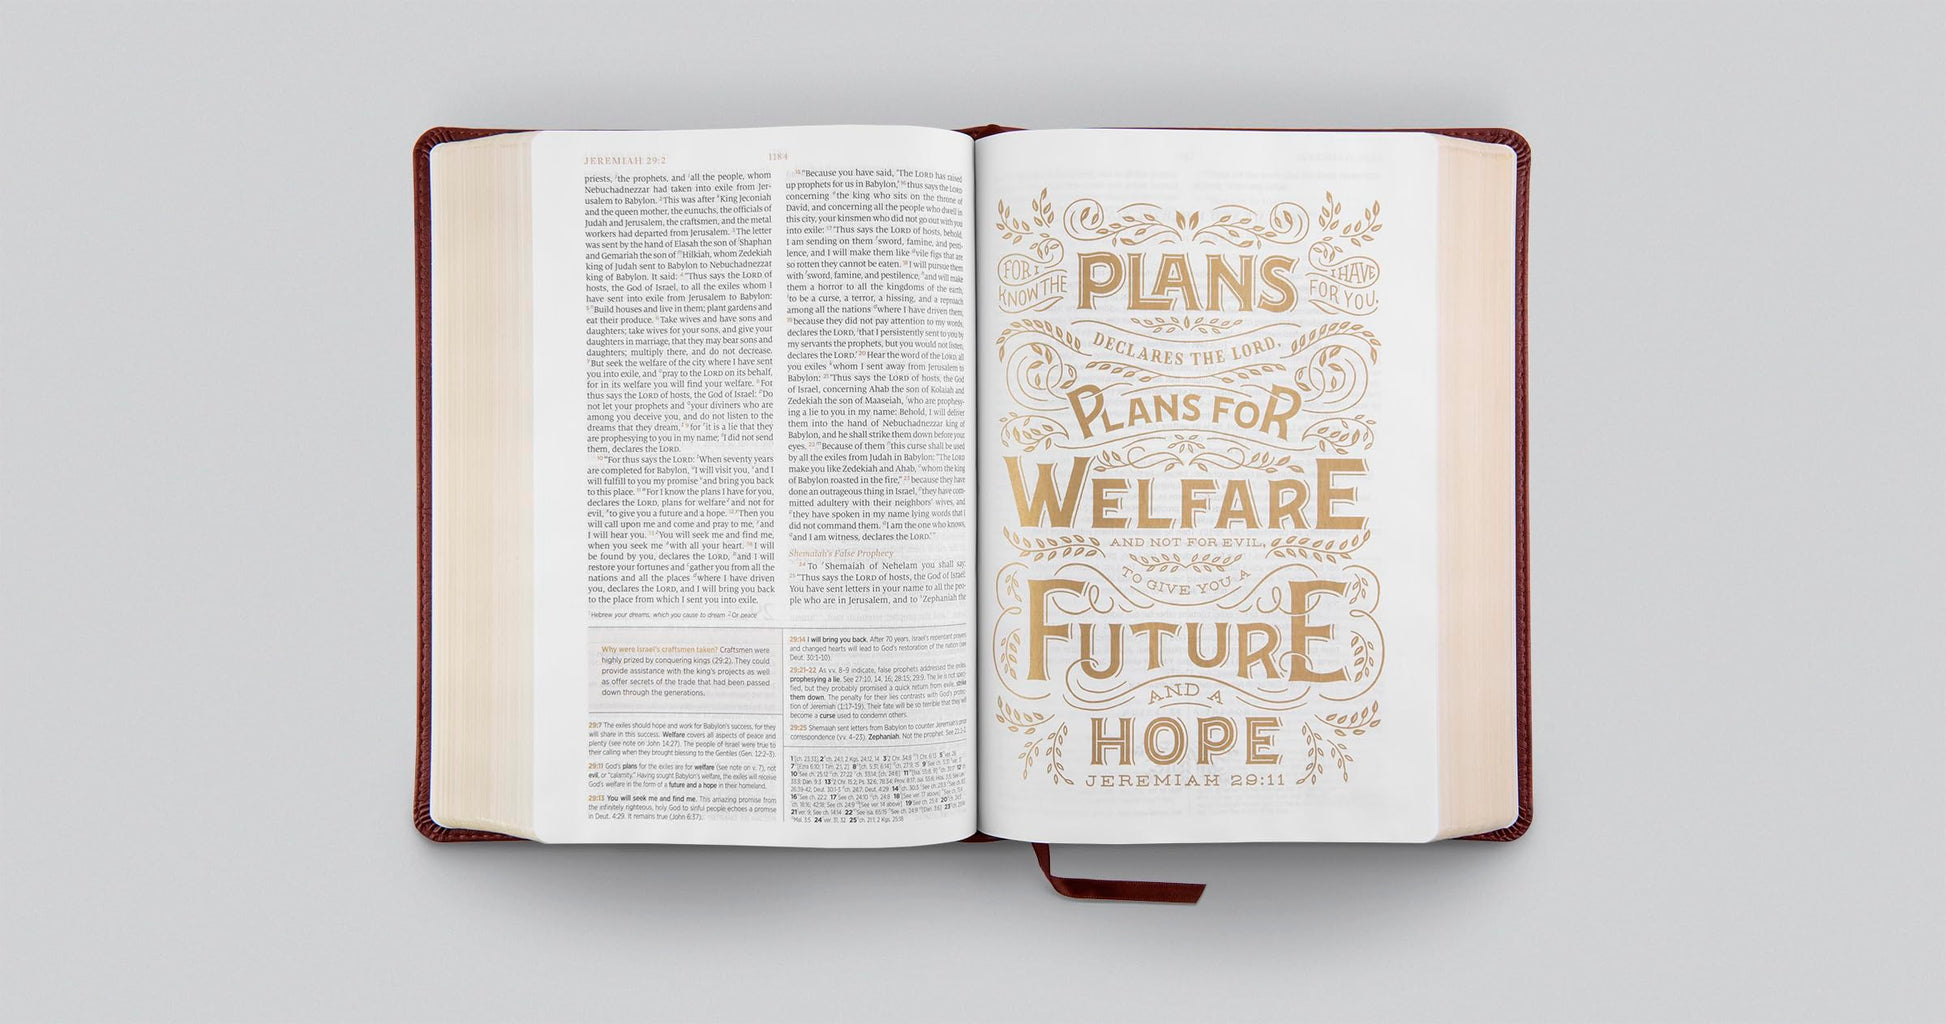 JEREMIAH 29:2
1184
priests, the prophets, and all the people, whom
Nebuchadnezzar had taken into exile from Jer-
usalem to Babylon. 2 This was after King Jeconiah
and the queen mother, the eunuchs, the officials of
Judah and Jerusalem, the craftsmen, and the metal
workers had departed from Jerusalem. 3 The letter
was sent by the hand of Elasah the son of Shaphan
and Gemariah the son of Hilkiah, whom Zedekiah
king of Judah sent to Babylon to Nebuchadnezzar
king of Babylon. It said: 4 “Thus says the LORD of
hosts, the God of Israel, to all the exiles whom I
have sent into exile from Jerusalem to Babylon:
5 Build houses and live in them; plant gardens and
eat their produce. 6 Take wives and have sons and
daughters; take wives for your sons, and give your
daughters in marriage, that they may bear sons and
daughters; multiply there, and do not decrease.
7 But seek the welfare of the city where I have sent
you into exile, and pray to the LORD on its behalf,
for in its welfare you will find your welfare. 8 For
thus says the LORD of hosts, the God of Israel: Do
not let your prophets and your diviners who are
among you deceive you, and do not listen to the
dreams that they dream, 9 for it is a lie that they
are prophesying to you in my name; I did not send
them, declares the LORD.
10 “For thus says the LORD: When seventy years
are completed for Babylon, I will visit you, and I
will fulfill to you my promise and bring you back
to this place. 11 For I know the plans I have for you,
declares the LORD, plans for welfare and not for
evil, to give you a future and a hope. 12 Then you
will call upon me and come and pray to me, and
I will hear you. 13 You will seek me and find me,
when you seek me with all your heart. 14 I will
be found by you, declares the LORD, and I will
restore your fortunes and gather you from all the
nations and all the places where I have driven
you, declares the LORD, and I will bring you back
to the place from which I sent you into exile.
Hebrew your dreams, which you cause to dream 2 Or peace
15 “Because you have said, ‘The LORD has raised
up prophets for us in Babylon,’ 16 thus says the LORD
concerning the king who sits on the throne of
David, and concerning all the people who dwell in
this city, your kinsmen who did not go out with you
into exile: 17 ‘Thus says the LORD of hosts, behold,
I am sending on them sword, famine, and pesti-
lence, and I will make them like vile figs that are
so rotten they cannot be eaten. 18 I will pursue them
with sword, famine, and pestilence, and will make
them a horror to all the kingdoms of the earth,
to be a curse, a terror, a hissing, and a reproach
among all the nations where I have driven them,
19 because they did not pay attention to my words,
declares the LORD, that I persistently sent to you by
my servants the prophets, but you would not listen,
declares the LORD.’ 20 Hear the word of the LORD, all
you exiles whom I sent away from Jerusalem to
Babylon: 21 ‘Thus says the LORD of hosts, the God
of Israel, concerning Ahab the son of Kolaiah and
Zedekiah the son of Maaseiah, who are prophesy-
ing a lie to you in my name: Behold, I will deliver
them into the hand of Nebuchadnezzar king of
Babylon, and he shall strike them down before your
eyes. 22 Because of them this curse shall be used
by all the exiles from Judah in Babylon: “The LORD
make you like Zedekiah and Ahab, whom the king
of Babylon roasted in the fire,” 23 because they have
done an outrageous thing in Israel, they have com-
mitted adultery with their neighbors’ wives, and
they have spoken in my name lying words that I
did not command them. I am the one who knows,
and I am witness, declares the LORD.’”
Shemaiah’s False Prophecy
24 To Shemaiah of Nehelam you shall say:
25 “Thus says the LORD of hosts, the God of Israel:
You have sent letters in your name to all the peo-
ple who are in Jerusalem, and to Zephaniah the
Why were Israel’s craftsmen taken? Craftsmen were
highly prized by conquering kings (29:2). They could
provide assistance with the king’s projects as well
as offer secrets of the trade that had been passed
down through the generations.
29:7 The exiles should hope and work for Babylon’s success, for they
will share in this success. Welfare covers all aspects of peace and
plenty (see note on John 14:27). The people of Israel were true to
their calling when they brought blessing to the Gentiles (Gen. 12:2–3).
29:11 God’s plans for the exiles are for welfare (see note on v. 7), not
evil, or “calamity.” Having sought Babylon’s welfare, the exiles will receive
God’s welfare in the form of a future and a hope in their homeland.
29:13 You will seek me and find me. This amazing promise from
the infinitely righteous, holy God to sinful people echoes a promise
in Deut. 4:29. It remains true (John 6:37).
29:14 I will bring you back. After 70 years, Israel’s repentant prayers
and changed hearts will lead to God’s restoration of the nation (see
Deut. 30:1–10).
29:21–22 As vv. 8–9 indicate, false prophets addressed the exiles,
prophesying a lie. See 27:10, 14, 16; 28:15; 29:9. The lie is not speci-
fied, but they probably promised a quick return from exile.
them down. The penalty for their lies contrasts with God’s protec-
tion of Jeremiah (1:17–19). Their fate will be so terrible that they will
become a curse used to condemn others.
29:25 Shemaiah sent letters from Babylon to counter Jeremiah’s prior
correspondence (vv. 4–23). Zephaniah. Not the prophet.
FOR I
KNOW THE
PLANS
I HAVE
FOR YOU,
DECLARES THE LORD,
PLANS FOR
WELFARE
AND NOT FOR EVIL,
TO GIVE YOU A
FUTURE
AND A
HOPE
JEREMIAH 29:11